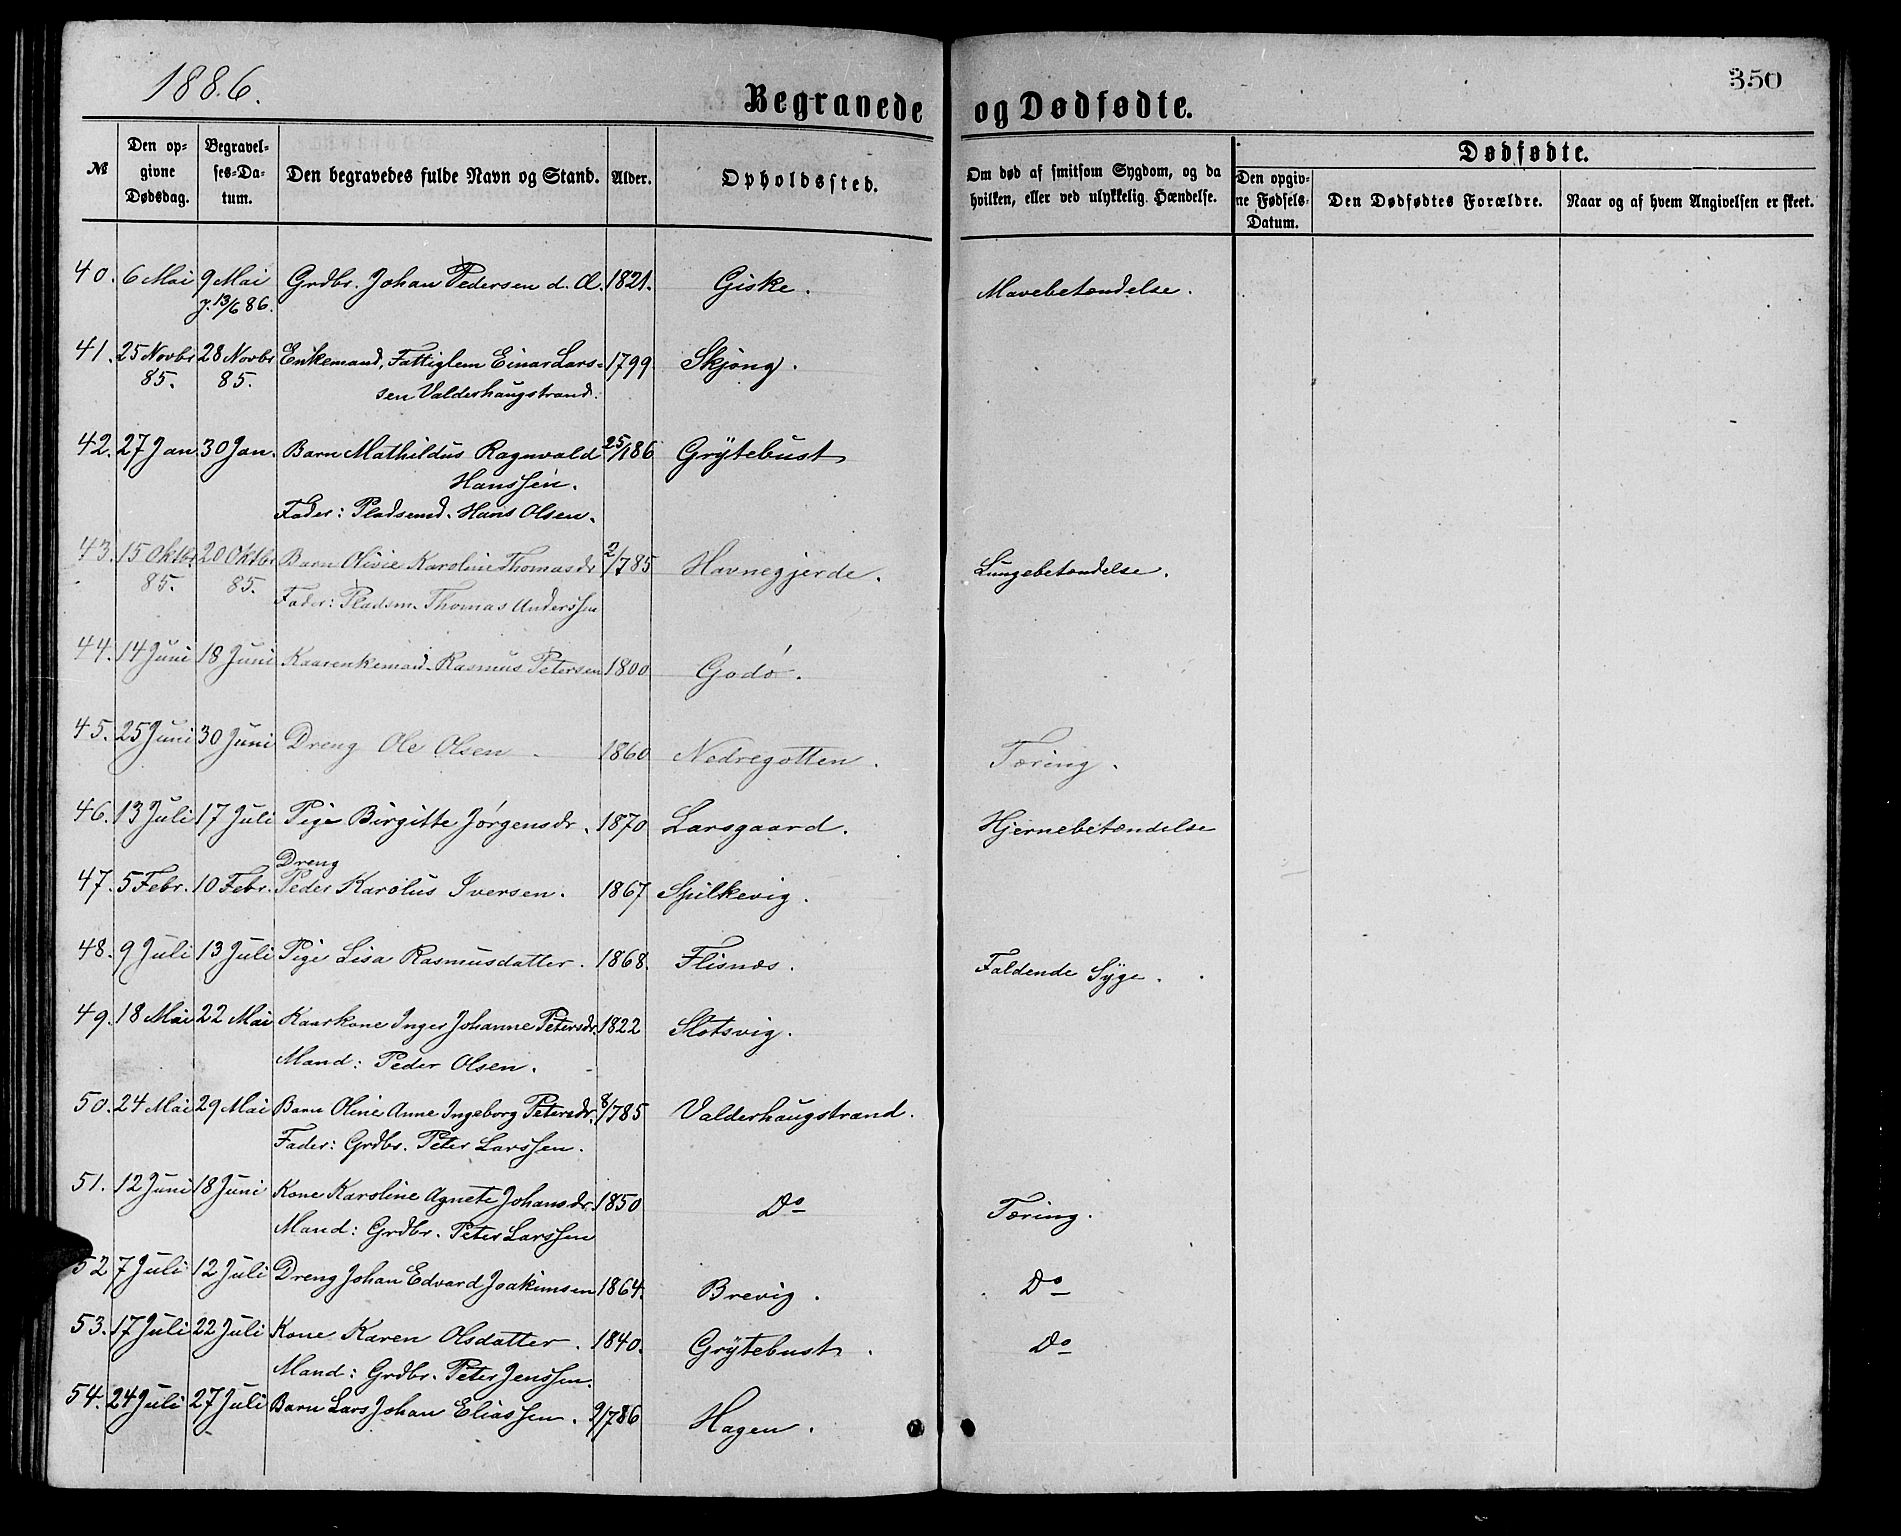 1886.
350
Begravede og Dødfødte.
№
Den opgivne Dødsdag.
Begravelses-Datum.
Den begravedes fulde Navn og Stand.
Alder.
Opholdssted.
Om død af smitsom Sygdom, og da hvilken, eller ved ulykkelig Hændelse.
Dødfødte.
Den opgivne Fødsels-Datum.
Den Dødfødtes Forældre.
Naar og af hvem Angivelsen er skeet.
40. 6 Mai 9 Mai Grdbr. Johan Pedersen d. Æ. 1821. Giske. Mavebetændelse.
J. 13/6 86.
41. 25 Novbr 28 Novbr Enkemand, Fattiglem Einar Lars- 1799 Skjong.
85. 85. sen Valderhaugstrand.
42. 27 Jan 30 Jan. Barn Mathildus Ragnvald 25/186 Grÿtebust
Hanssen.
Fader: Pladsemd. Hans Olsen.
43. 15 Oktbr 20 Oktbr Barn Olivie Karoline Thomasdr 2/785 Havnegjerde. Lungebetændelse.
85. 85. Fader: Pladsm. Thomas Anderssen
44. 14 Juni 18 Juni Kaarenkemand. Rasmus Petersen 1800 Godø.
45. 25 Juni 30 Juni Dreng Ole Olsen 1860 Nedregotten. Tæring.
46. 13 Juli 17 Juli Pige Birgitte Jørgensdr. 1870 Larsgaard. Hjernebetændelse
Dreng
47. 5 Febr. 10 Febr. Peder Karolus Iversen. 1867 Spilkevig.
48. 9 Juli 13 Juli Pige Lisa Rasmusdatter. 1868. Flisnæs. Faldende Sÿge.
49. 18 Mai 22 Mai Kaarkone Inger Johanne Petersdr. 1822 Slotsvig.
Mand: Peder Olsen.
50. 24 Mai 29 Mai Barn Oline Anne Ingeborg Petersdr. 8/785 Valderhaugstrand.
Fader: Grdbr. Peter Larssen.
51. 12 Juni 18 Juni Kone Karoline Agnete Johansdr. 1850 Do Tæring.
Mand: Grdbr. Peter Larssen
52 7 Juli 12 Juli Dreng Johan Edvard Joakimsen 1864. Brevig. Do
53. 17 Juli 22 Juli Kone Karen Olsdatter. 1840. Grÿtebust. Do
Mand: Grdbr. Peter Jenssen.
54. 24 Juli 27 Juli Barn Lars Johan Eliassen. 9/786 Hagen.